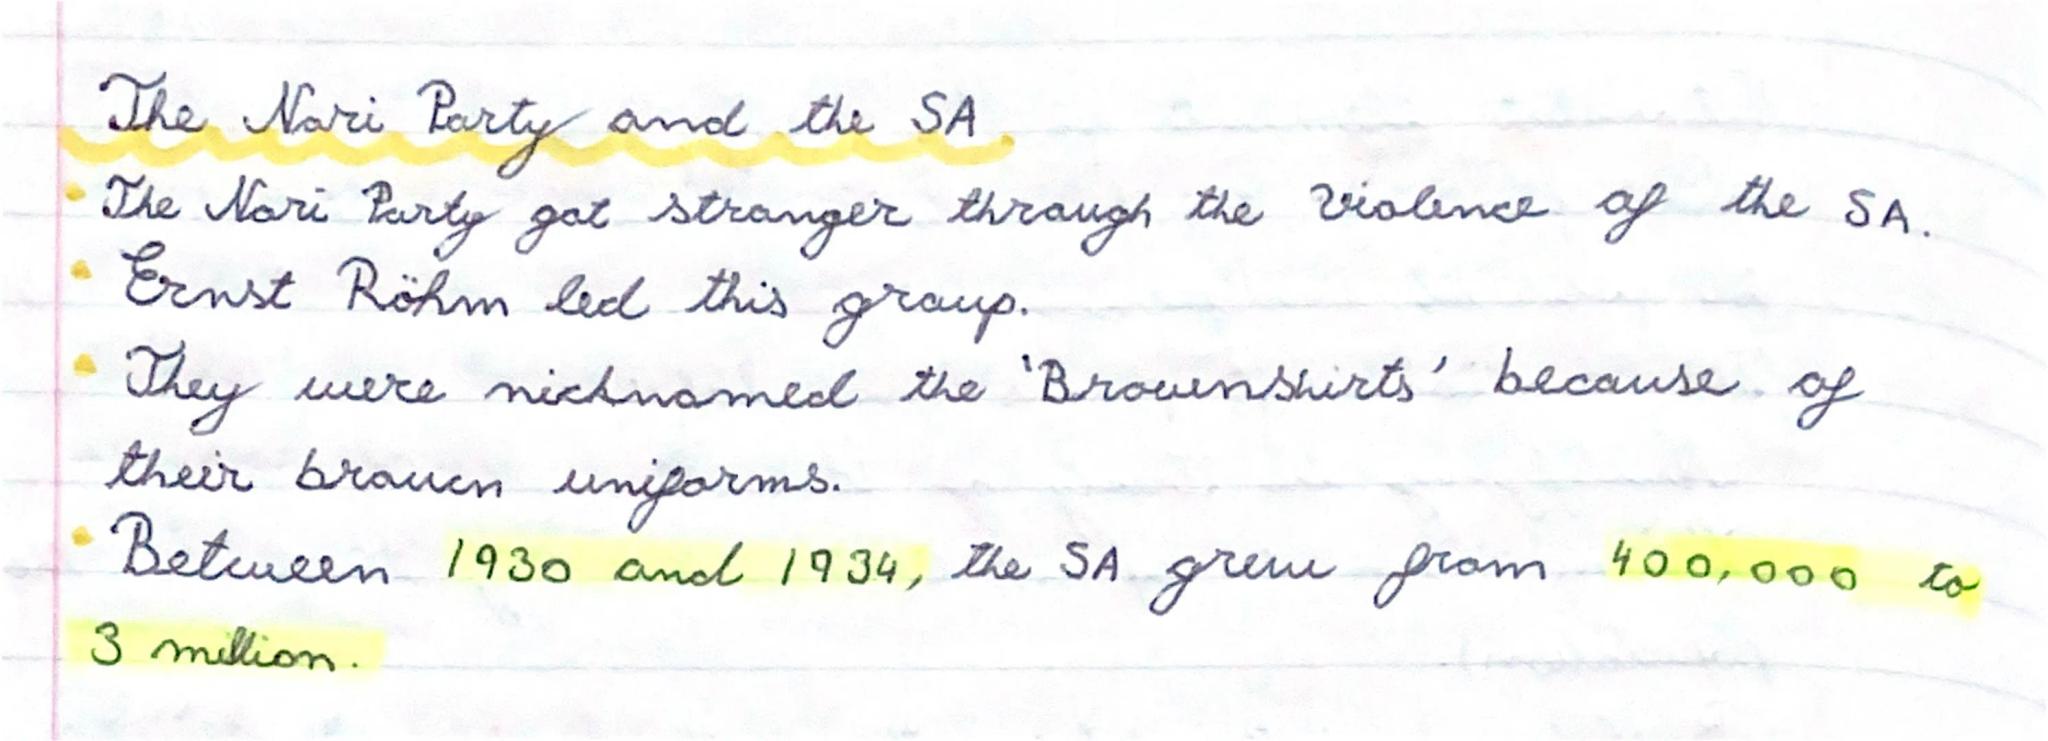 The Nazi Party and the SA
• The Nazi Party got stronger through the violence of the SA.
• Ernst Röhm led this group.
• They were nicknamed the 'Brownshirts' because of
their brown uniforms.
• Between 1930 and 1934, the SA grew from 400,000 to
3 million.